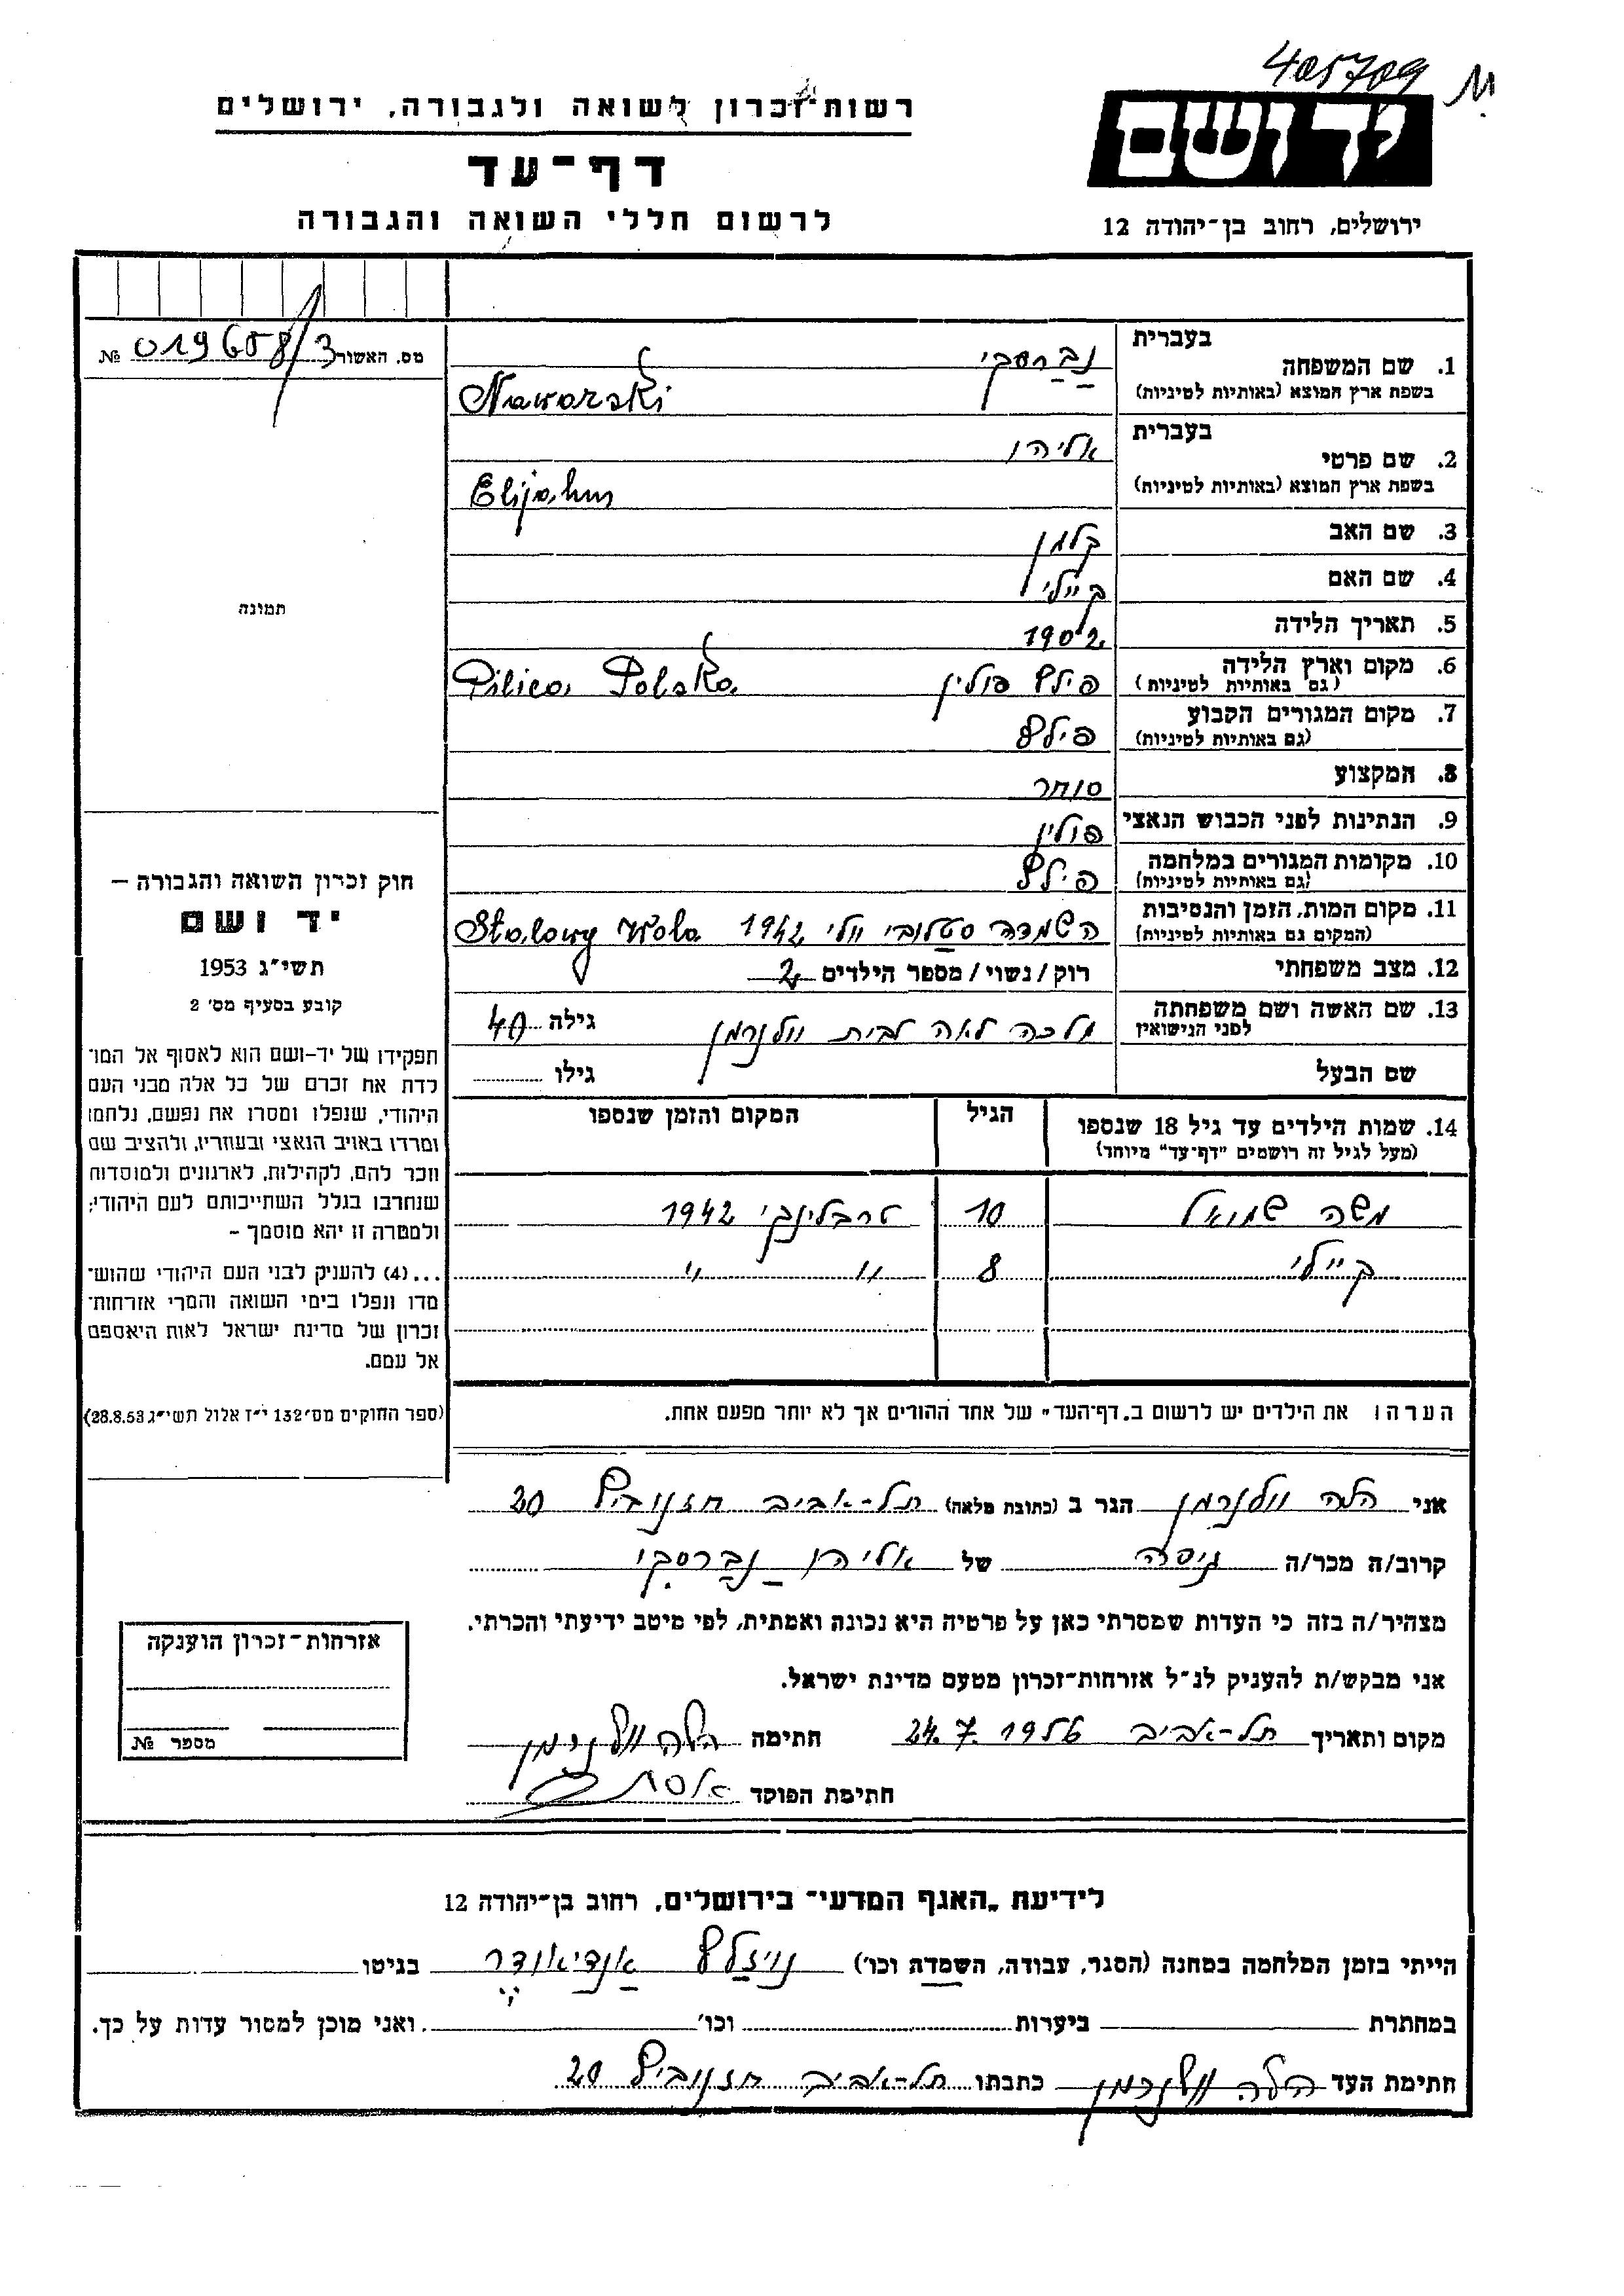 405709
רשות־זכרון לשואה ולגבורה, ירושלים
דף־עד
לרשום חללי השואה והגבורה
יד ושם
ירושלים, רחוב בן־יהודה 12
מס. האשור 019658/3 №
תמונה
חוק זכרון השואה והגבורה —
יד ושם
תשי״ג 1953
קובע בסעיף מס׳ 2
תפקידו של יד-ושם הוא לאסוף אל המו־
לדת את זכרם של כל אלה מבני העם
היהודי, שנפלו ומסרו את נפשם, נלחמו
ומרדו באויב הנאצי ובעוזריו, ולהציב שם
וזכר להם, לקהילות, לארגונים ולמוסדות
שנחרבו בגלל השתייכותם לעם היהודי;
ולמטרה זו יהא מוסמך —
...(4) להעניק לבני העם היהודי שהוש־
מדו ונפלו בימי השואה והמרי אזרחות־
זכרון של מדינת ישראל לאות היאספם
אל עמם.
(ספר החוקים מס׳ 132 י״ז אלול תשי״ג 28.8.53)
בעברית נברסקי
1. שם המשפחה
בשפת ארץ המוצא (באותיות לטיניות) Nawarski
בעברית אליהו
2. שם פרטי
בשפת ארץ המוצא (באותיות לטיניות) Elijahu
3. שם האב קלמן
4. שם האם קיילי
5. תאריך הלידה 1902
6. מקום וארץ הלידה פילץ פולין Pilica Polska
(גם באותיות לטיניות)
7. מקום המגורים הקבוע פילץ
(גם באותיות לטיניות)
8. המקצוע סוחר
9. הנתינות לפני הכבוש הנאצי פולין
10. מקומות המגורים במלחמה פילץ
(גם באותיות לטיניות)
11. מקום המות, הזמן והנסיבות השמדה סטלובי וולי 1942 Stalowy Wola
(המקום גם באותיות לטיניות)
12. מצב משפחתי רוק/נשוי/מספר הילדים 2
13. שם האשה ושם משפחתה מלכה לאה לבית וולנרמן גילה 40
לפני הנישואין
שם הבעל גילו
14. שמות הילדים עד גיל 18 שנספו הגיל המקום והזמן שנספו
(מעל לגיל זה רושמים ״דף־עד״ מיוחד)
משה שמואל 10 טרבלינקי 1942
קיילי 8 " "
הערה: את הילדים יש לרשום ב„דף־העד״ של אחד ההורים אך לא יותר מפעם אחת.
אני הלה וולנרמן הגר ב (כתובת מלאה) תל-אביב 20
קרוב/ה מכר/ה גיסה של אליהו נברסקי
מצהיר/ה בזה כי העדות שמסרתי כאן על פרטיה היא נכונה ואמתית, לפי מיטב ידיעתי והכרתי.
אני מבקש/ת להעניק לנ״ל אזרחות־זכרון מטעם מדינת ישראל.
מקום ותאריך תל-אביב 24.7.1956 חתימה הלה וולנרמן
חתימת הפוקד
אזרחות־זכרון הוענקה
מספר №
לידיעת „האגף המדעי״ בירושלים, רחוב בן־יהודה 12
הייתי בזמן המלחמה במחנה (הסגר, עבודה, השמדה וכו׳) בגיטו
במחתרת ביערות וכו׳ ואני מוכן למסור עדות על כך.
חתימת העד הלה וולנרמן כתבתו תל-אביב 20